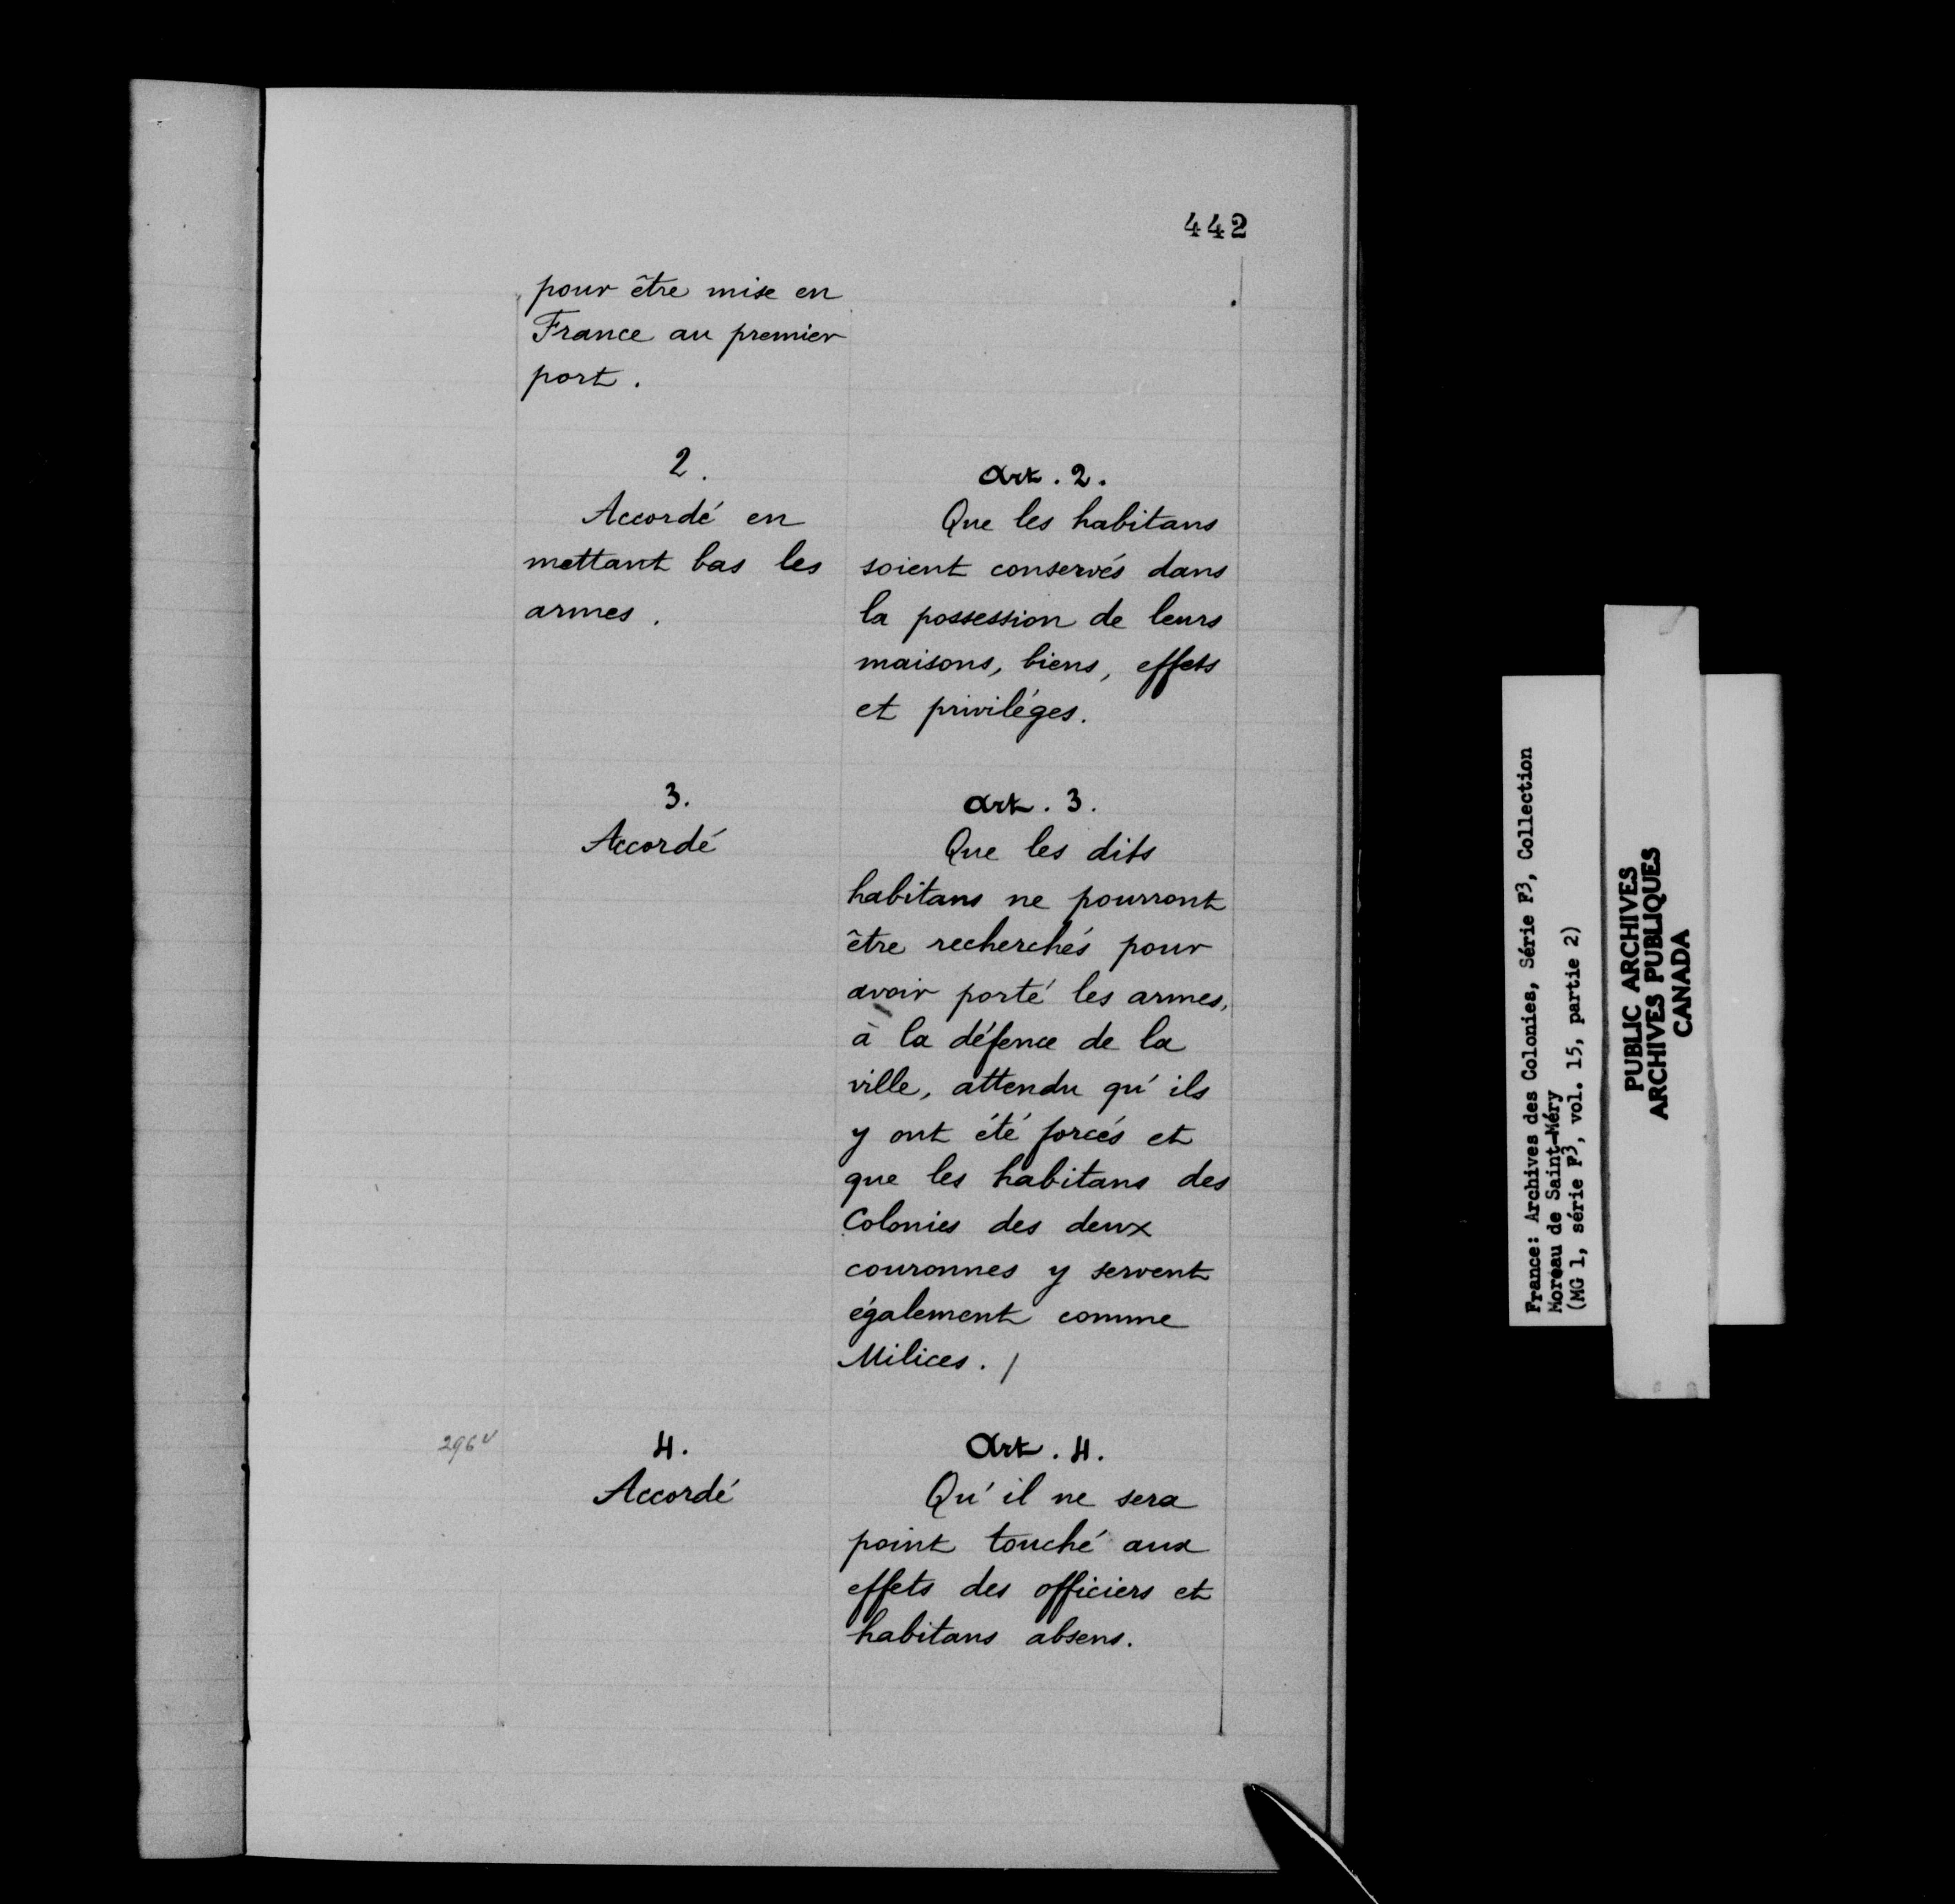 442
pour être mise en
France au premier
port.
2.
Accordé en
mettant bas les
armes.
Art. 2.
Que les habitans
soient conservés dans
la possession de leurs
maisons, biens, effets
et priviléges.
3.
Accordé
Art. 3.
Que les dits
habitans ne pourront
être recherchés pour
avoir porté les armes,
à la défence de la
ville, attendu qu'ils
y ont été forcés et
que les habitans des
Colonies des deux
couronnes y servent
également comme
Milices. /
296v
4.
Accordé
Art. 4.
Qu'il ne sera
point touché aux
effets des officiers et
habitans absens.
France: Archives des Colonies, Série F3, Collection
Moreau de Saint-Méry
(MG 1, série F3, vol. 15, partie 2)
PUBLIC ARCHIVES
ARCHIVES PUBLIQUES
CANADA